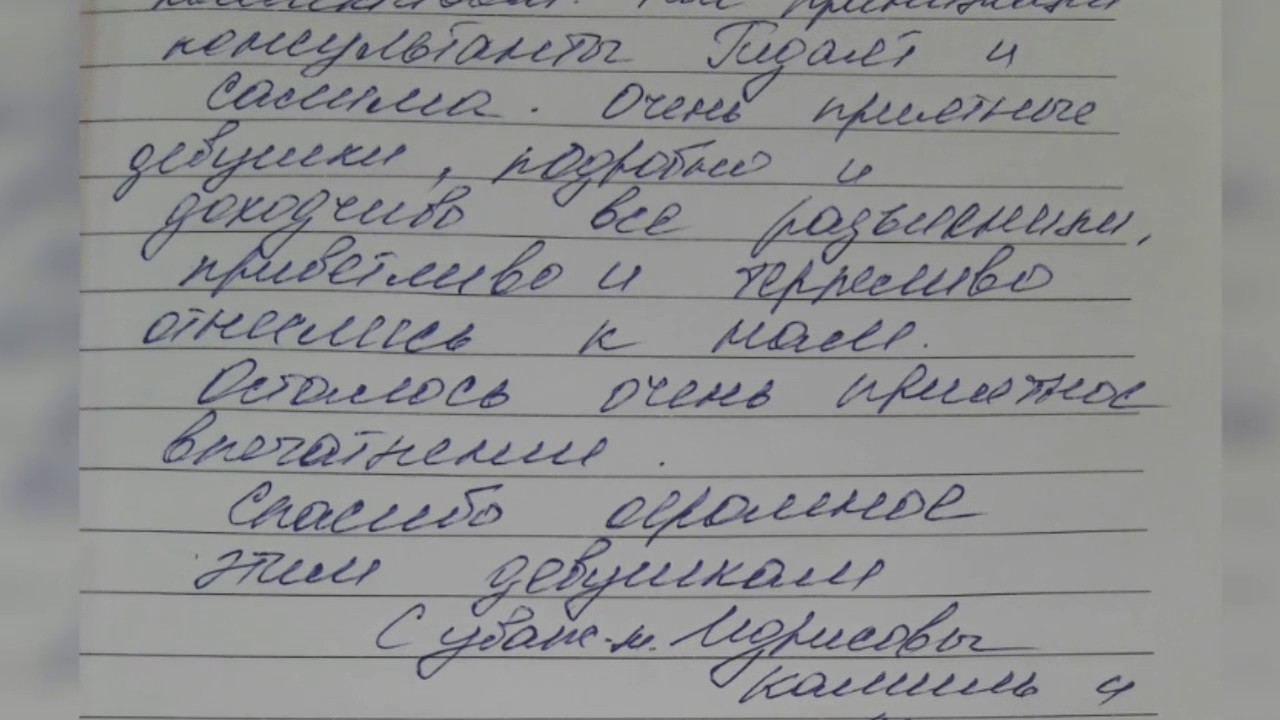 консультанты и
Салима. Очень приятные
девушки, подробно и
доходчиво все разъяснили,
приветливо и терпеливо
отнеслись к нам.
Осталось очень приятное
впечатнении.
Спасибо огромное
этим девушкам
С уваж-м. Идрисовы
Камиль и